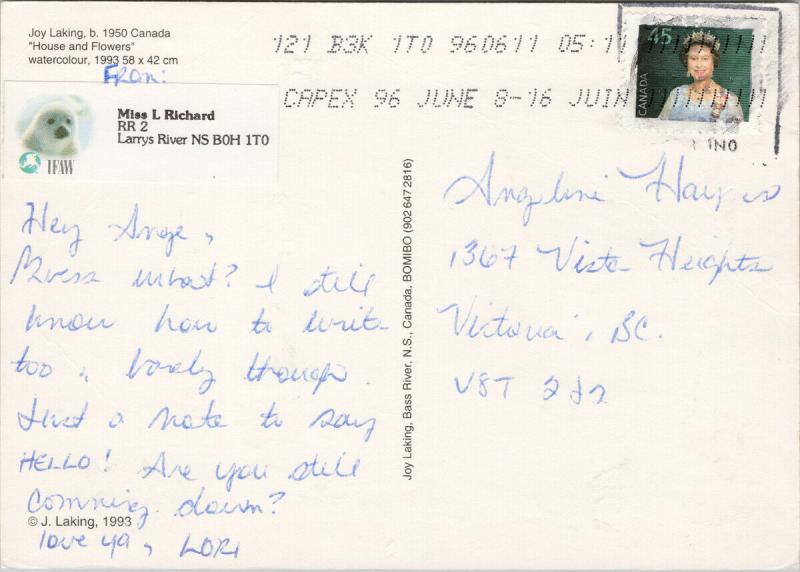 Joy Laking, b. 1950 Canada
"House and Flowers"
watercolour, 1993 58 x 42 cm
From:
Miss L Richard
RR 2
Larrys River NS B0H 1T0
IFAW
121 B3K 1T0 960611 05:11
CAPEX 96 JUNE 8-16 JUIN
45
CANADA
Hey Ange,
Guess what? I still
know how to write
too, barely though.
Just a note to say
HELLO! Are you still
Comming down?
love ya, LORI
© J. Laking, 1993
Joy Laking, Bass River, N.S., Canada, BOMIBO (902 647 2816)
Angeline Hayes
1367 Vista Heights
Victoria, BC.
V8T 2J2